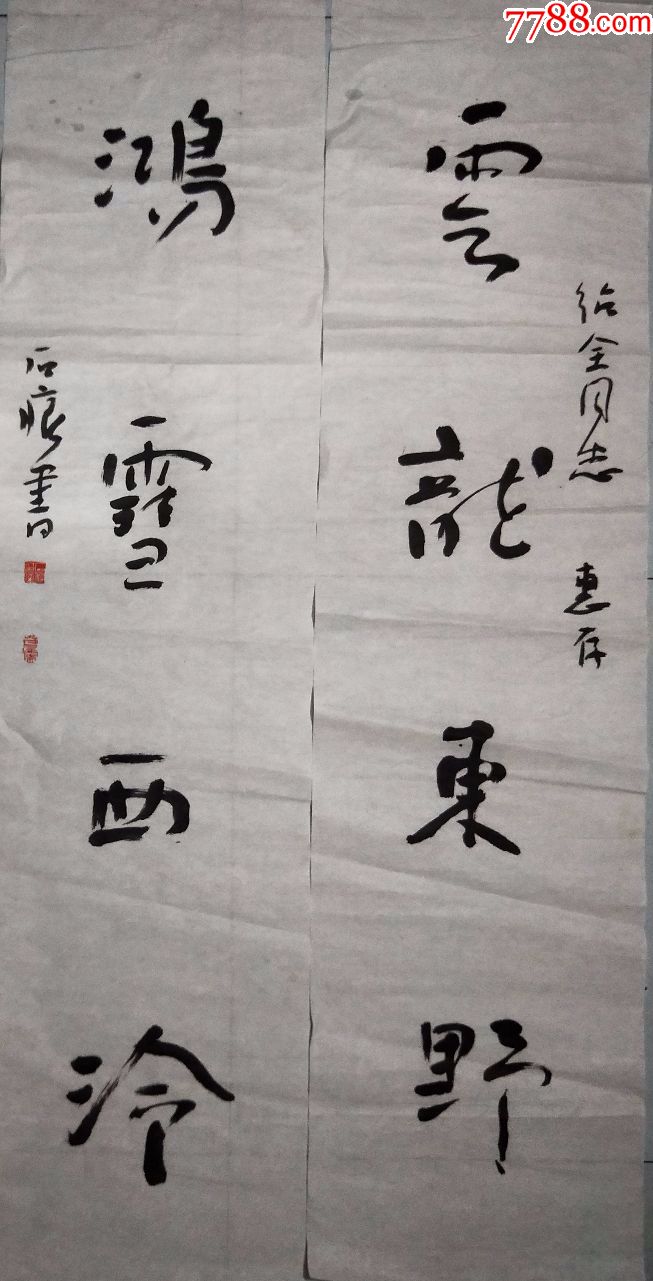 7788.com
给全同志 惠存
雲龍東野
鴻雪西泠
石痕書